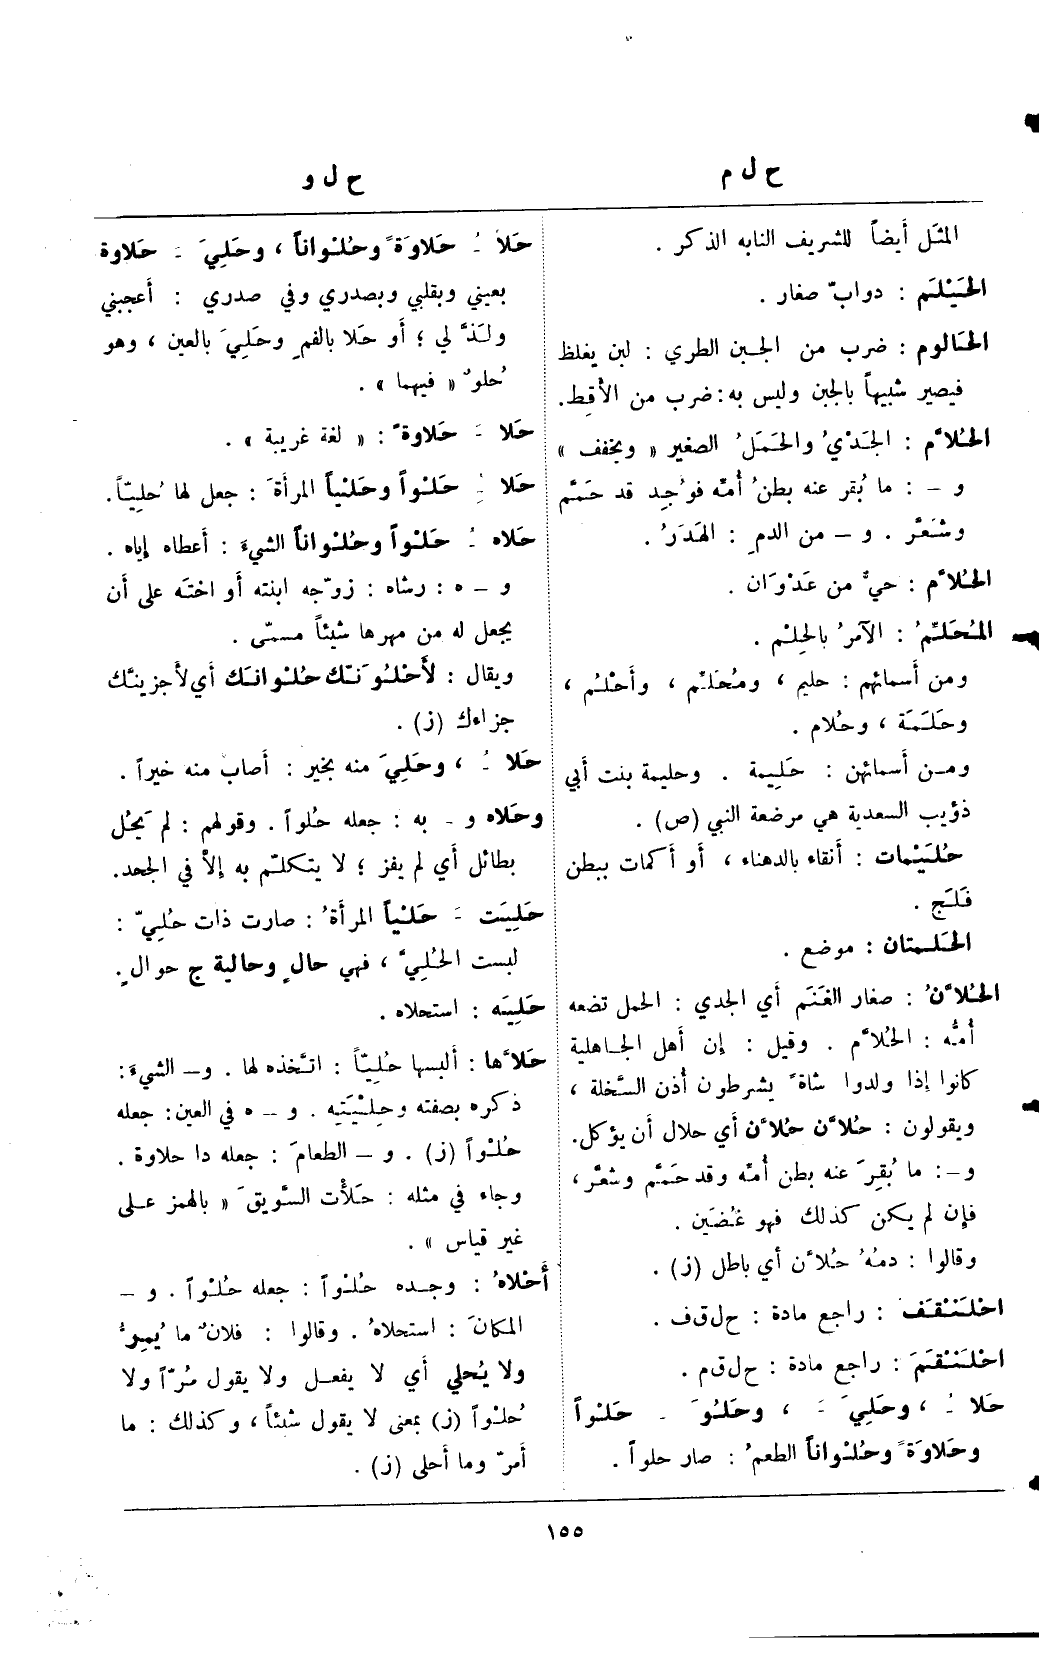 ح ل م
المثَل أيضاً للشريف النابه الذكر .
الحَيْلَم : دوابّ صغار .
الحَالوم : ضرب من الجبن الطري : لبن يغلظ
فيصير شبيهاً بالجبن وليس به : ضرب من الأقِط.
الحُلاَّم : الجَدْيُ والحَمَلُ الصغير « ويخفف »
و – : ما بُقر عنه بطنُ أُمّه فوُجِد قد حَمَّم
وشَعَّر . و – من الدمِ : الهَدَرُ .
الحُلاَّم : حيٌّ من عَدْوَان .
المُحَلِّمُ : الآمرُ بالحِلْم .
ومن أسمائهم : حليم ، ومُحَلِّم ، وأَحْلُم ،
وحَلَمَة ، وحُلام .
ومن أسمائهن : حَلِيمة . وحليمة بنت أبي
ذؤيب السعدية هي مرضعة النبي (ص) .
حُلَيْمات : أنقاء بالدهناء ، أو أكمات ببطن
فَلَج .
الحَلَمتان : موضع .
الحُلاَّنُ : صغار الغَنَم أي الجدي : الحمل تضعه
أُمُّه : الحُلاَّم . وقيل : إن أهل الجاهلية
كانوا إذا ولدوا شاةً يشرطون أذن السَّخلة ،
ويقولون : حُلاَّن حُلاَّن أي حلال أن يؤكل.
و–: ما بُقِرَ عنه بطن أُمّه وقد حَمَّم وشعَّر ،
فإن لم يكن كذلك فهو غَضَين .
وقالوا : دمُهُ حُلاَّن أي باطل (ز) .
احْلَنْقَفَ : راجع مادة : ح ل ق ف .
احْلَنْقَمَ : راجع مادة : ح ل ق م .
حَلا ـُ ، وحَلِيَ ـَ ، وحَلُوَ ـُ حَلْواً
وحَلاوَةً وحُلْواناً الطعمُ : صار حلواً .
ح ل و
حَلاَ ـُ حَلاوَةً وحُلْواناً ، وحَلِيَ ـَ حَلاوة
بعيني وبقلبي وبصدري وفي صدري : أعجبني
ولَذَّ لي ؛ أو حَلا بالفمِ وحَلِيَ بالعين ، وهو
حُلوٌ « فيهما » .
حَلا ـَ حَلاوةً : « لغة غريبة » .
حَلا ـُِ حَلْواً وحَلْياً المرأةَ : جعل لها حُليّاً.
حَلاه ـُ حَلْواً وحُلْواناً الشيءَ : أعطاه إياه .
و – ه : رشاه : زوّجه ابنته أو اختَه على أن
يجعل له من مهرها شيئاً مسمّى .
ويقال : لأَحْلُوَنّك حُلْوانَك أي لأجزينّك
جزاءك (ز) .
حَلا ـُ ، وحَلِيَ منه بخير : أصاب منه خيراً .
وحَلاه و – به : جعله حُلواً . وقولهم : لم يَحْلُ
بطائل أي لم يفز ؛ لا يتكلّم به إلاّ في الجحد.
حَلِيَت ـَ حَلْياً المرأةُ : صارت ذات حُلِيّ :
لبست الحُلِيَّ ، فهي حالٍ وحالية ج حوالٍ .
حَلِيَه : استحلاه .
حَلاَّها : ألبسها حُلِيّاً : اتَّخذه لها . و– الشيءَ :
ذكره بصفته وحِلْيَتِه . و – ه في العين : جعله
حُلْواً (ز) . و – الطعامَ : جعله ذا حلاوة .
وجاء في مثله : حَلأْت السَّويقَ « بالهمز على
غير قياس » .
أَحْلاهُ : وجده حُلْواً : جعله حُلْواً . و –
المكانَ : استحلاهُ . وقالوا : فلانٌ ما يُمِرُّ
ولا يُحلي أي لا يفعل ولا يقول مُرّاً ولا
حُلْواً (ز) بمعنى لا يقول شيئاً ، وكذلك : ما
أمرّ وما أحلى (ز) .
١٥٥